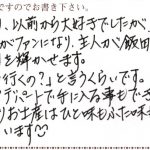 ですのでお書き下さい。
、以前から大好きでしたが
がファンになり、主人が飯田
を輝かせます。
行くの？」と言うくらいです。
デパートで手に入る事もでき
お土産はひと味もふた味
います